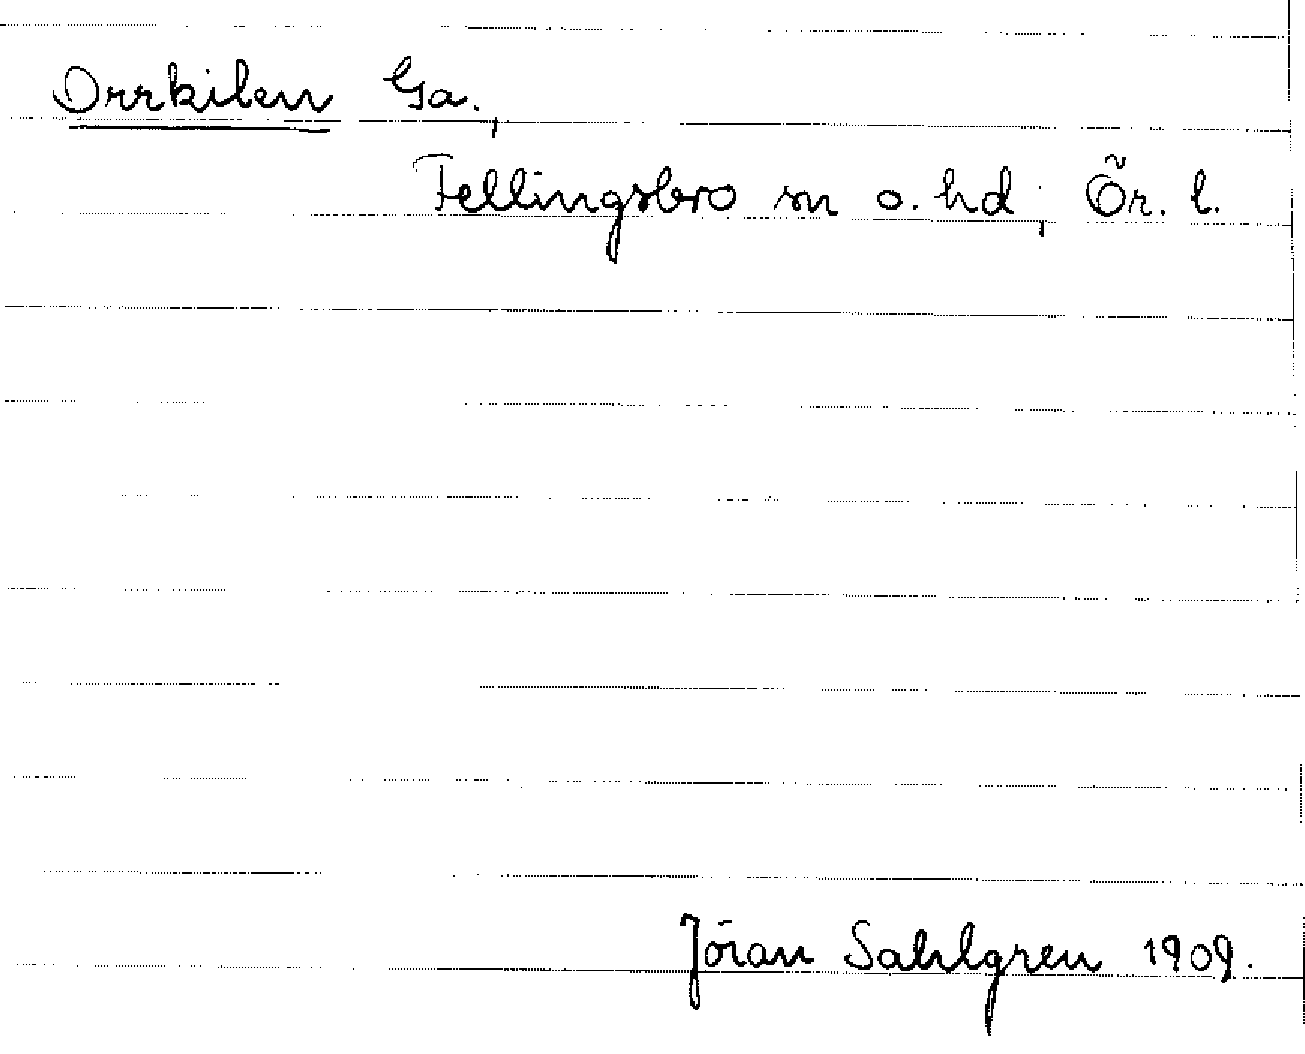 Orrkilen Ga.,
Fellingsbro sn o. hd, Ör. l.
Jöran Sahlgren 1909.